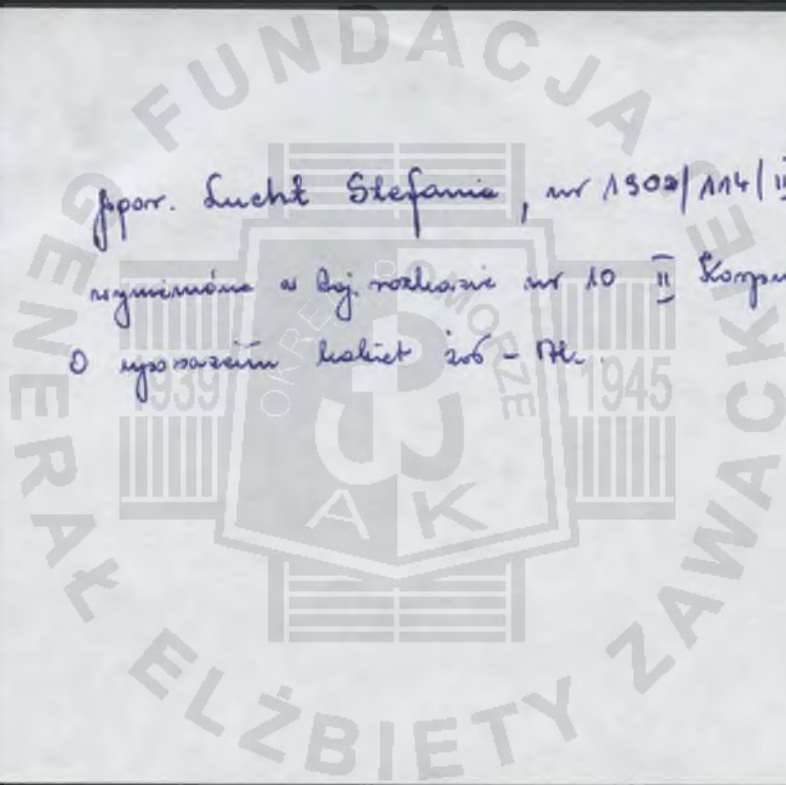 ppor. Lucht Stefania, nr 1902/114/II
wymieniona w Roj. rozkazie nr 10 II Korpu
O wyposażeniu kobiet żoł - Mk.
FUNDACJA
GENERAŁ ELŻBIETY ZAWACKIEJ
OKRĘG POMORZE
1939
1945
AK